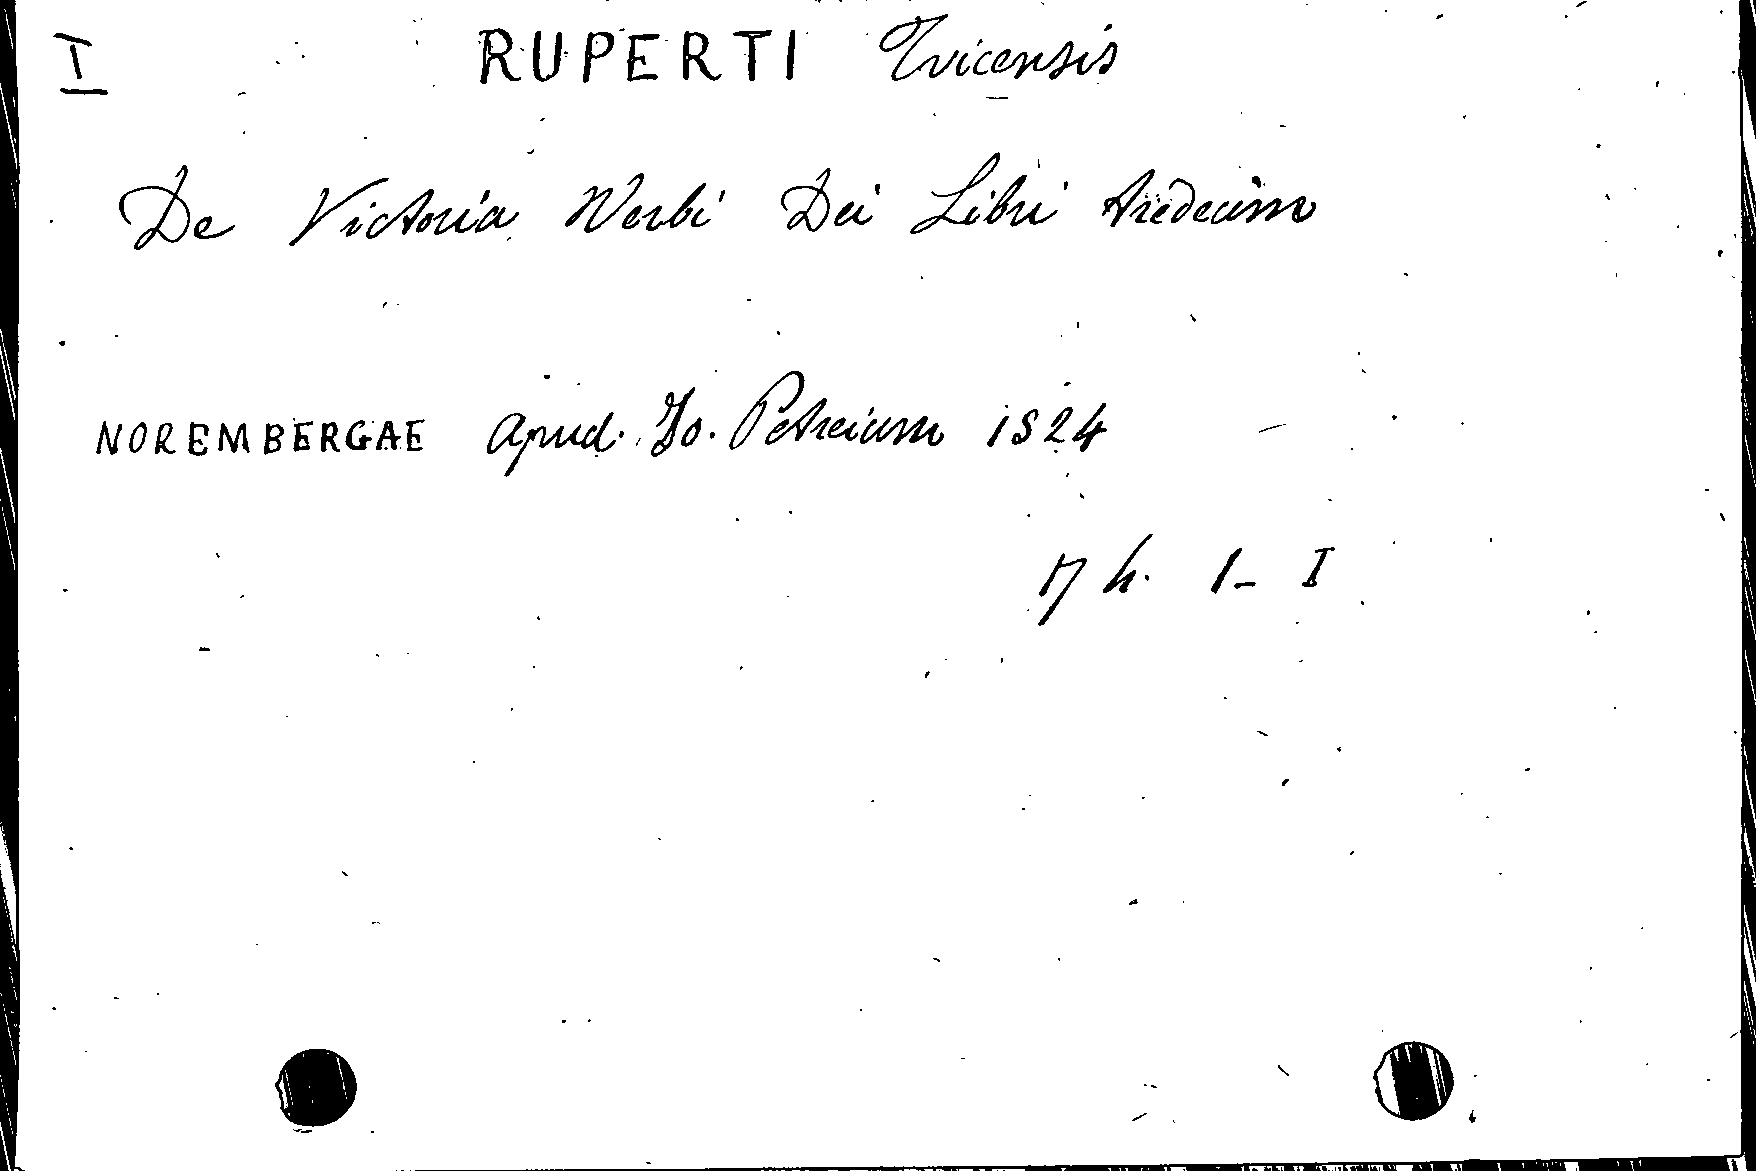 I RUPERTI Tvicensis
De Victoria Verbi Dei Libri tredecim
NOREMBERGAE apud. Jo. Petreium 1524
17 h. 1- I